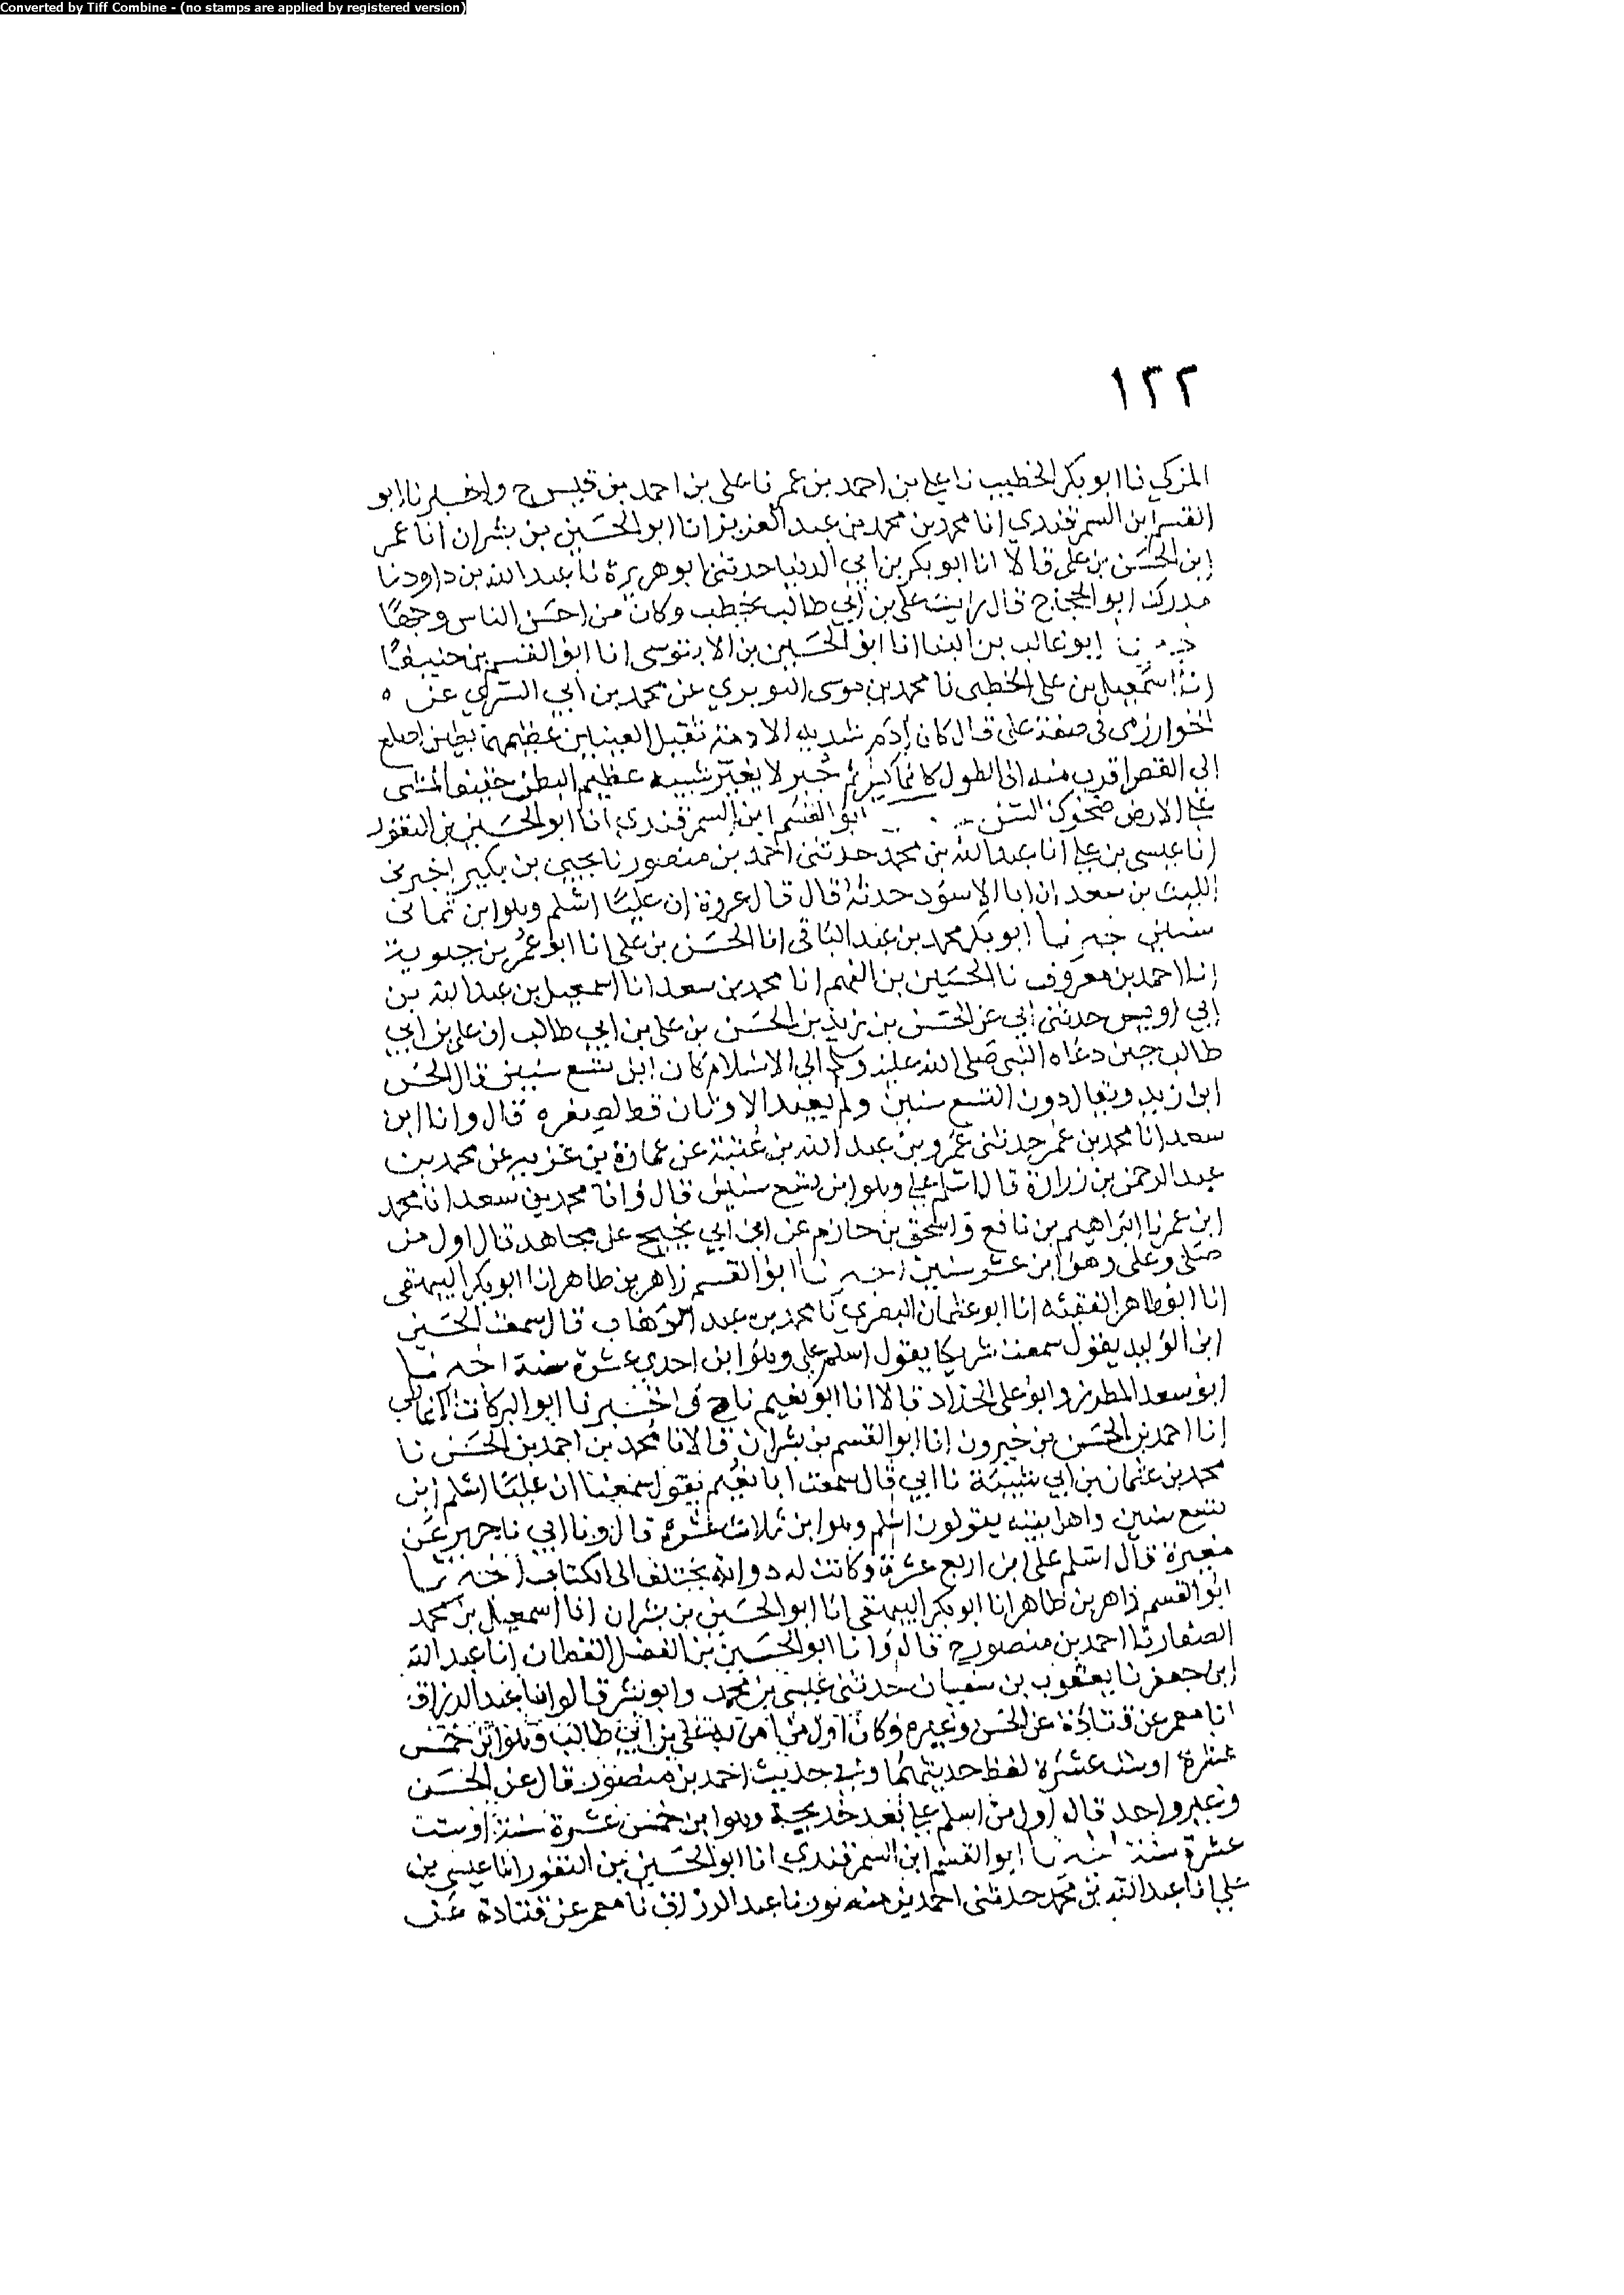 Converted by Tiff Combine - (no stamps are applied by registered version)
١٢٢
المزكي نا ابو بكر الخطيب نا علي بن احمد بن عمر نا علي بن احمد بن قيس ح واخبرنا ابو
القسم ابن السمرقندي انا محمد بن محمد بن عبد العزيز انا ابو الحسين بن بشران انا عمر
ابن الحسن بن علي قالا انا ابو بكر بن ابي الدنيا حدثني ابو هريرة نا عبد الله بن داود نا
مدرك ابو الحجاج قال رايت علي بن ابي طالب يخطب وكان من احسن الناس وجها
ابو غالب بن البنا انا ابو الحسين بن الابنوسي انا ابو القسم بن
انا اسمعيل بن علي الخطبي نا محمد بن موسى البربري عن محمد بن ابي السري عن
الخوارزمي في صفة علي قال كان ادم شديد الادمة ثقيل العينين عظيمهما بطين اصلع
الى القصر اقرب منه الى الطول كانما كسر ثم جبر لا يغير شيبه عظيم البطن خفيف المشي
على الارض ضحوك السن ابو القسم ابن السمرقندي انا ابو الحسين بن النقور
انا عيسى بن علي انا عبد الله بن محمد حدثني احمد بن منصور نا يحيى بن بكير اخبرني
الليث بن سعد ان ابا الاسود حدثه قال قال عروة ان عليا اسلم وهو ابن ثماني
سنين ابو بكر محمد بن عبد الباقي انا الحسن بن علي انا ابو عمر بن حيوية
انا احمد بن معروف نا الحسين بن الفهم انا محمد بن سعد انا اسمعيل بن عبد الله بن
ابي اويس حدثني ابي عن الحسن بن زيد بن الحسن بن علي بن ابي طالب ان علي بن ابي
طالب حين دعاه النبي صلى الله عليه وسلم الى الاسلام كان ابن تسع سنين قال الحسن
ابن زيد ويقال دون التسع سنين ولم يعبد الاوثان قط لصغره قال وانا ابن
سعد انا محمد بن عمر حدثني عمرو بن عبد الله بن عنبسة عن عمارة بن غزيه عن محمد بن
عبد الرحمن بن زرارة قال اسلم علي وهو ابن تسع سنين قال وانا محمد بن سعد انا محمد
ابن عمر نا ابراهيم بن نافع واسحق بن حازم عن ابن ابي نجيح عن مجاهد قال اول من
صلى وعلى وهو ابن عشر سنين اخبرنا ابو القسم زاهر بن طاهر انا ابو بكر البيهقي
انا ابو طاهر الفقيه انا ابو عثمان البصري نا محمد بن عبد الوهاب قال سمعت الحسين
ابن الوليد يقول سمعت شريكا يقول اسلم علي وهو ابن احدى عشرة سنة اخبرنا
ابو سعد المطرز وابو علي الحداد قالا انا ابو نعيم نا ح واخبرنا ابو البركات الانماطي
انا احمد بن الحسن بن خيرون انا ابو القسم بن بشران قالا نا محمد بن احمد بن الحسن نا
محمد بن عثمان بن ابي شيبة نا ابي قال سمعت ابا نعيم يقول سمعنا ان عليا اسلم ابن
تسع سنين واهل بيته يقولون اسلم وهو ابن ثلاث عشرة قال ونا ابي نا جرير عن
مغيرة قال اسلم علي ابن اربع عشرة وكانت له دوابة يختلف الى الكتاب اخبرنا
ابو القسم زاهر بن طاهر انا ابو بكر البيهقي انا ابو الحسين بن بشران انا اسمعيل بن محمد
الصفار نا احمد بن منصور ح قال وانا ابو الحسين بن الفضل القطان انا عبد الله
ابن جعفر نا يعقوب بن سفيان حدثني عيسى بن محمد وابو بشر قالوا انا عبد الرزاق
انا معمر عن قتادة عن الحسن وغيره وكان اول من امن به علي بن ابي طالب وهو ابن خمس
عشرة او ست عشرة لفظ حديثهما وفي حديث احمد بن منصور قال عن الحسن
وغير واحد قال اول من اسلم علي بعد خديجة وهو ابن خمس عشرة سنة او ست
عشرة سنة اخبرنا ابو القسم ابن السمرقندي انا ابو الحسين بن النقور انا عيسى بن
علي انا عبد الله بن محمد حدثني احمد بن منصور نا عبد الرزاق نا معمر عن قتادة عن